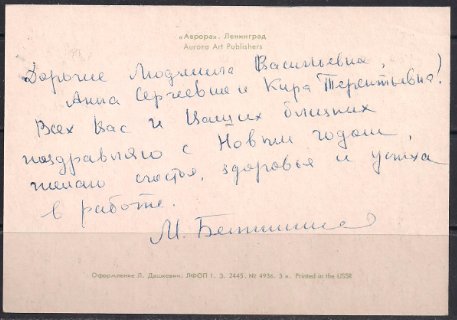 «Аврора». Ленинград
Aurora Art Publishers
Дорогие Людмила Васильевна,
Анна Сергеевна и Кира Терентьевна!
Всех Вас и Ваших близких
поздравляю с Новым годом,
желаю счастья, здоровья и успеха
в работе.
М.
Оформление Л. Дашкевич. ЛФОП 1. З. 2445. № 4936. 3 к. Printed in the USSR